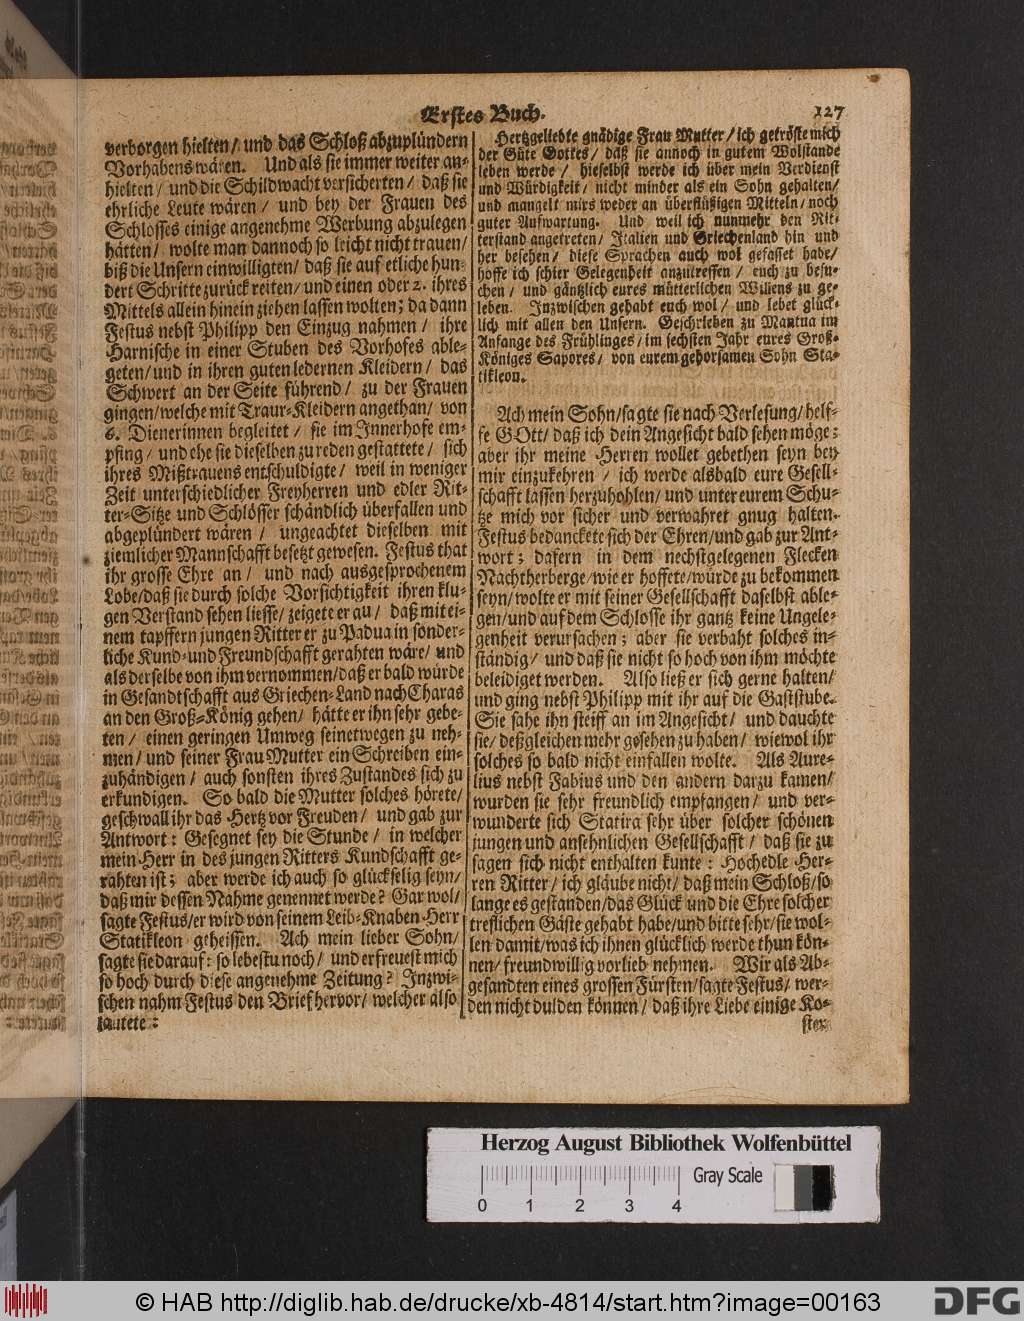 Erstes Buch.
127
verborgen hielten/ und das Schloß abzuplündern
Vorhabens wären. Und als sie immer weiter an-
hielten/ und die Schildwacht versicherten/ daß sie
ehrliche Leute wären/ und bey der Frauen des
Schlosses einige angenehme Werbung abzulegen
hätten/ wolte man dannoch so leicht nicht trauen/
biß die Unsern einwilligten/ daß sie auf etliche hun-
dert Schritte zurück reiten/ und einen oder 2. ihres
Mittels allein hinein ziehen lassen wolten; da dann
Festus nebst Philipp den Einzug nahmen/ ihre
Harnische in einer Stuben des Vorhofes able-
geten/ und in ihren guten ledernen Kleidern/ das
Schwert an der Seite führend/ zu der Frauen
gingen/ welche mit Traur-Kleidern angethan/ von
6. Dienerinnen begleitet/ sie im Innerhofe em-
pfing/ und ehe sie dieselben zu reden gestattete/ sich
ihres Mißtrauens entschuldigte/ weil in weniger
Zeit unterschiedlicher Freyherren und edler Rit-
ter-Sitze und Schlösser schändlich überfallen und
abgeplündert wären/ ungeachtet dieselben mit
ziemlicher Mannschafft besetzt gewesen. Festus that
ihr grosse Ehre an/ und nach ausgesprochenem
Lobe/ daß sie durch solche Vorsichtigkeit ihren klu-
gen Verstand sehen liesse/ zeigete er an/ daß mit ei-
nem tapffern jungen Ritter er zu Padua in sonder-
liche Kund- und Freundschafft gerahten wäre/ und
als derselbe von ihm vernommen/ daß er bald würde
in Gesandtschafft aus Griechen-Land nach Charas
an den Groß-König gehen/ hätte er ihn sehr gebe-
ten/ einen geringen Umweg seinetwegen zu neh-
men/ und seiner Frau Mutter ein Schreiben ein-
zuhändigen/ auch sonsten ihres Zustandes sich zu
erkundigen. So bald die Mutter solches hörete/
geschwall ihr das Hertz vor Freuden/ und gab zur
Antwort: Gesegnet sey die Stunde/ in welcher
mein Herr in des jungen Ritters Kundschafft ge-
rahten ist; aber werde ich auch so glückselig seyn/
daß mir dessen Nahme genennet werde? Gar wol/
sagte Festus/ er wird von seinem Leib-Knaben Herr
Statikleon geheissen. Ach mein lieber Sohn/
sagte sie darauf: so lebestu noch/ und erfreuest mich
so hoch durch diese angenehme Zeitung? Inzwi-
schen nahm Festus den Brief hervor/ welcher also
lautete:
Hertzgeliebte gnädige Frau Mutter/ ich getröste mich
der Güte Gottes/ daß sie annoch in gutem Wolstande
leben werde/ hieselbst werde ich über mein Verdienst
und Würdigkeit/ nicht minder als ein Sohn gehalten/
und mangelt mirs weder an überflüßigen Mitteln/ noch
guter Aufwartung. Und weil ich nunmehr den Rit-
terstand angetreten/ Italien und Griechenland hin und
her besehen/ diese Sprachen auch wol gefasset habe/
hoffe ich schier Gelegenheit anzutreffen/ euch zu besu-
chen/ und gäntzlich eures mütterlichen Willens zu ge-
leben. Inzwischen gehabt euch wol/ und lebet glück-
lich mit allen den Unsern. Geschrieben zu Mantua im
Anfange des Frühlinges/ im sechsten Jahr eures Groß-
Königes Sapores/ von eurem gehorsamen Sohn Sta-
tikleon.
Ach mein Sohn/ sagte sie nach Verlesung/ helf-
fe GOtt/ daß ich dein Angesicht bald sehen möge;
aber ihr meine Herren wollet gebethen seyn bey
mir einzukehren/ ich werde alsbald eure Gesell-
schafft lassen herzuhohlen/ und unter eurem Schu-
tze mich vor sicher und verwahret gnug halten.
Festus bedanckete sich der Ehren/ und gab zur Ant-
wort; dafern in dem nechstgelegenen Flecken
Nachtherberge/ wie er hoffete/ würde zu bekommen
seyn/ wolte er mit seiner Gesellschafft daselbst able-
gen/ und auf dem Schlosse ihr gantz keine Ungele-
genheit verursachen; aber sie verbaht solches in-
ständig/ und daß sie nicht so hoch von ihm möchte
beleidiget werden. Also ließ er sich gerne halten/
und ging nebst Philipp mit ihr auf die Gaststube.
Sie sahe ihn steiff an im Angesicht/ und dauchte
sie/ deßgleichen mehr gesehen zu haben/ wiewol ihr
solches so bald nicht einfallen wolte. Als Aure-
lius nebst Fabius und den andern darzu kamen/
wurden sie sehr freundlich empfangen/ und ver-
wunderte sich Statira sehr über solcher schönen
jungen und ansehnlichen Gesellschafft/ daß sie zu
sagen sich nicht enthalten kunte: Hochedle Her-
ren Ritter/ ich gläube nicht/ daß mein Schloß/ so
lange es gestanden/ das Glück und die Ehre solcher
treflichen Gäste gehabt habe/ und bitte sehr/ sie wol-
len damit/ was ich ihnen glücklich werde thun kön-
nen/ freundwillig vorlieb nehmen. Wir als Ab-
gesandten eines grossen Fürsten/ sagte Festus/ wer-
den nicht dulden können/ daß ihre Liebe einige Ko-
sten
Herzog August Bibliothek Wolfenbüttel
Gray Scale
0 1 2 3 4
© HAB http://diglib.hab.de/drucke/xb-4814/start.htm?image=00163
DFG